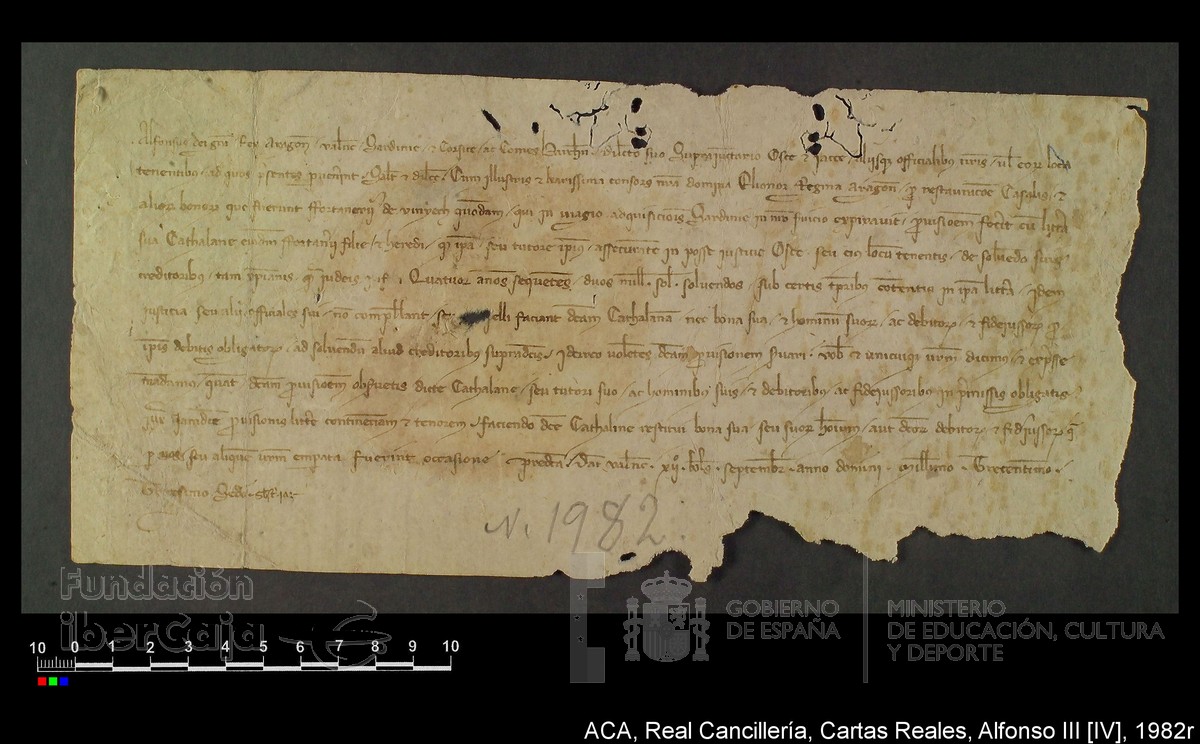 Alfonsus dei gra Rex Aragon Valnc Sardinie et Corsice ac Comes Barchn dilecto suo Supraiunctario Osce et Iacce aliisq officialibus nris vel eor loca
tenentibo ad quos psentes puenint Salt et dilec Cum illustris et karissima consors nra domina Elionor Regina Aragon p restauracoe Casalis et
alior bonor que fuerunt ffortanerii de vinyech quondam qui in viagio adquisiciois Sardinie in nro suicio expiravit puisioem fecit cu littra
sua Cathalane eiusdem ffortanii filie et heredi q ipa seu tutore ipius assecurate in posse iusticie Osce seu eius locu tenentis de solvedo suis
creditoribus tam xpianis q iudeis Quatuor annos sequetes duos mill sol solvendos sub certis tpribus cotentis in ipa littra idem
iusticia seu alii officiales sui no compellant elli faciant dcam Cathalana nec bona sua et hominum suor ac debitor et fideiussor p
ipis debitis obligator ad solvendu aliud creditoribus supradictis Idcirco voletes dcam provisionem suari vob et unicuiq urm dicimus et expsse
mandamus quat dcam puisioem obsuetis dicte Cathalane seu tutori suo ac hominibus suis et debitoribus ac fideiussoribus in pmissis obligatis
iux iamdicte provisionis littre continenciam et tenorem faciendo dce Cathaline restitui bona sua seu suor hoium aut dcor debitor et fideiussor q
p vos seu alique urm empata fuerint occasione predca Dat Valnc xii kls septembr anno domini Millimo Trecentimo
Tricesimo
N. 1982
10 0 1 2 3 4 5 6 7 8 9 10
Fundación
iberCaja
GOBIERNO
DE ESPAÑA
MINISTERIO
DE EDUCACIÓN, CULTURA
Y DEPORTE
ACA, Real Cancillería, Cartas Reales, Alfonso III [IV], 1982r